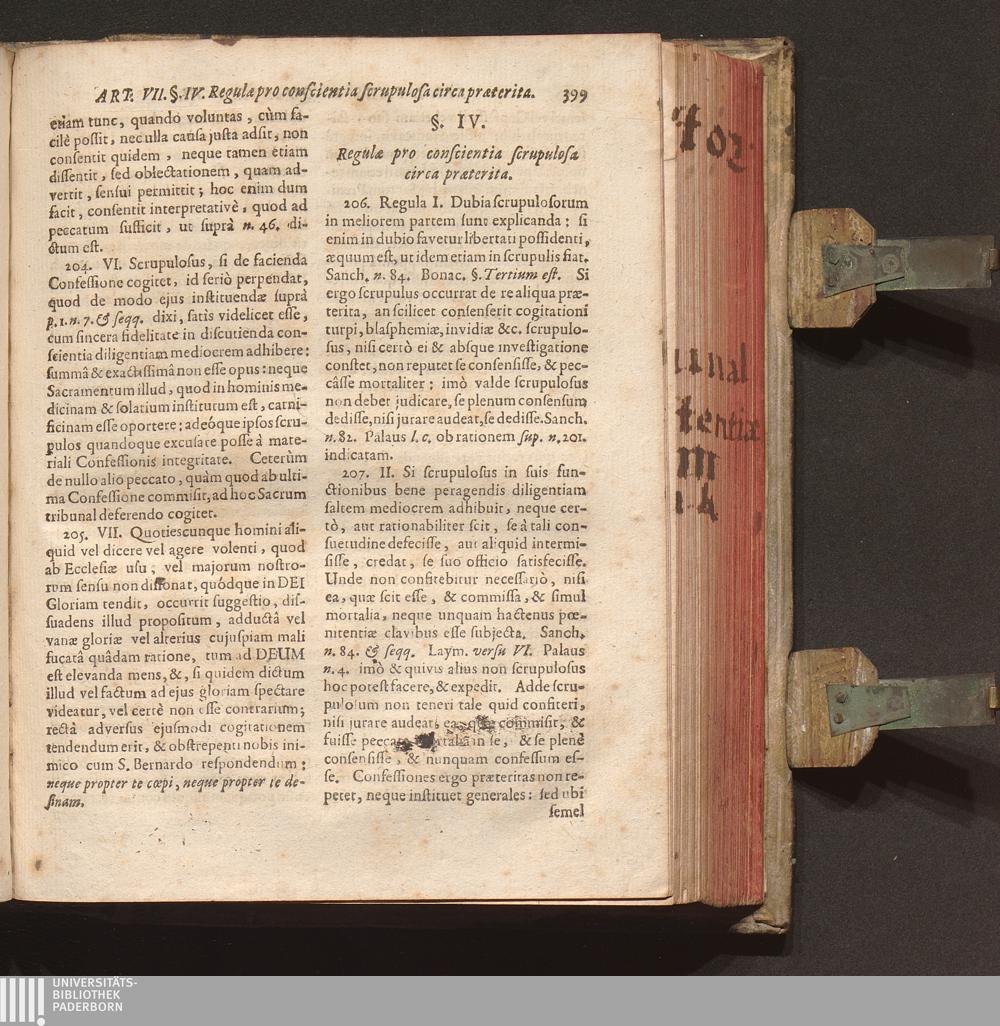 ART. VII. §. IV. Regulæ pro conscientia scrupulosa circa præterita. 399
etiam tunc, quando voluntas, cùm fa-
cilè possit, nec ulla causa justa adsit, non
consentit quidem, neque tamen etiam
dissentit, sed oblectationem, quam ad-
vertit, sensui permittit; hoc enim dum
facit, consentit interpretativè, quod ad
peccatum sufficit, ut suprà n. 46. di-
ctum est.
204. VI. Scrupulosus, si de facienda
Confessione cogitet, id seriò perpendat,
quod de modo ejus instituendæ suprà
p. 1. n. 7. & seqq. dixi, satìs videlicet esse,
cum sincera fidelitate in discutienda con-
scientia diligentiam mediocrem adhibere:
summâ & exactissimâ non esse opus: neque
Sacramentum illud, quod in hominis me-
dicinam & solatium institutum est, carni-
ficinam esse oportere: adeóque ipsos scru-
pulos quandoque excusare posse à mate-
riali Confessionis integritate. Ceterùm
de nullo alio peccato, quàm quod ab ulti-
ma Confessione commisit, ad hoc Sacrum
tribunal deferendo cogitet.
205. VII. Quotiescunque homini ali-
quid vel dicere vel agere volenti, quod
ab Ecclesiæ usu, vel majorum nostro-
rum sensu non dissonat, quódque in DEI
Gloriam tendit, occurrit suggestio, dis-
suadens illud propositum, adductâ vel
vanæ gloriæ vel alterius cujuspiam mali
fucatâ quâdam ratione, tum ad DEUM
est elevanda mens, &, si quidem dictum
illud vel factum ad ejus gloriam spectare
videatur, vel certè non esse contrarium;
rectà adversus ejusmodi cogitationem
tendendum erit, & obstrepenti nobis ini-
mico cum S. Bernardo respondendum:
neque propter te cœpi, neque propter te de-
sinam.
§. IV.
Regulæ pro conscientia scrupulosa
circa præterita.
206. Regula I. Dubia scrupulosorum
in meliorem partem sunt explicanda: si
enim in dubio favetur libertati possidenti,
æquum est, ut idem etiam in scrupulis fiat.
Sanch. n. 84. Bonac. §. Tertium est. Si
ergo scrupulus occurrat de re aliqua præ-
terita, an scilicet consenserit cogitationi
turpi, blasphemiæ, invidiæ &c. scrupulo-
sus, nisi certò ei & absque investigatione
constet, non reputet se consensisse, & pec-
câsse mortaliter: imò valde scrupulosus
non debet judicare, se plenum consensum
dedisse, nisi jurare audeat, se dedisse. Sanch.
n. 82. Palaus l. c. ob rationem sup. n. 201.
indicatam.
207. II. Si scrupulosus in suis fun-
ctionibus bene peragendis diligentiam
saltem mediocrem adhibuit, neque cer-
tò, aut rationabiliter scit, se à tali con-
suetudine defecisse, aut aliquid intermi-
sisse, credat, se suo officio satisfecisse.
Unde non confitebitur necessariò, nisi
ea, quæ scit esse, & commissa, & simul
mortalia, neque unquam hactenus pœ-
nitentiæ clavibus esse subjecta. Sanch.
n. 84. & seqq. Laym. versu VI. Palaus
n. 4. imò & quivis alius non scrupulosus
hoc potest facere, & expedit. Adde scru-
pulosum non teneri tale quid confiteri,
nisi jurare audeat, ea, quæ commisit, &
fuisse peccata mortalia in se, & se plenè
consensisse, & nunquam confessum es-
se. Confessiones ergo præteritas non re-
petet, neque instituet generales: sed ubi
semel
tentiæ
UNIVERSITÄTS-
BIBLIOTHEK
PADERBORN